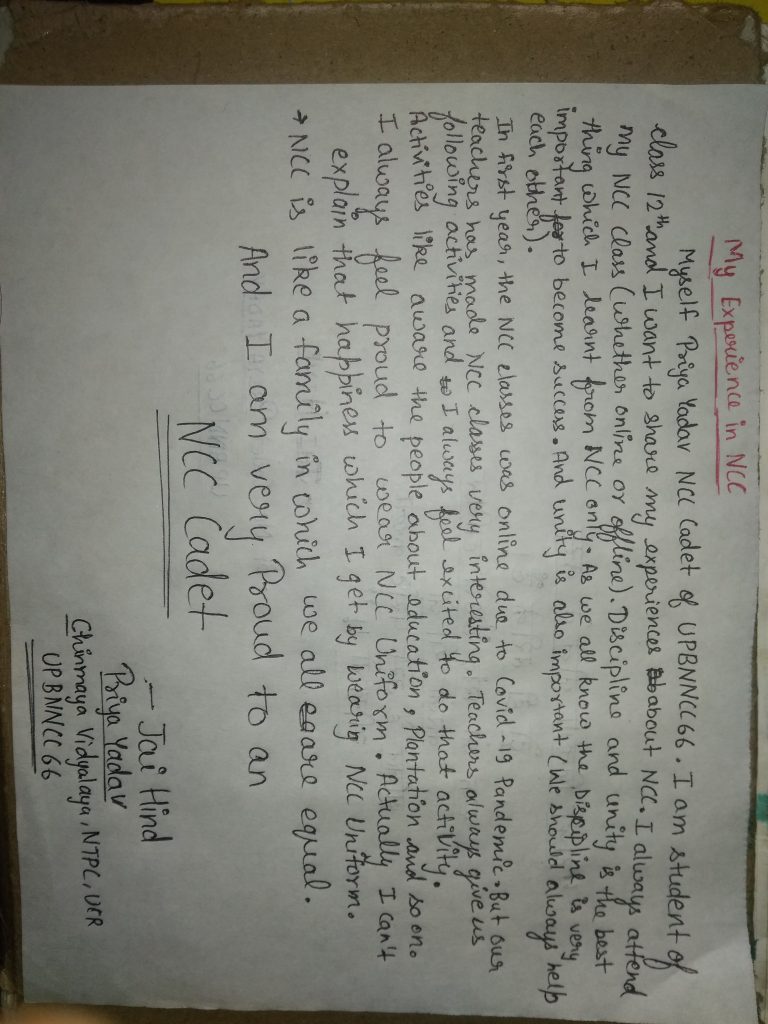 My Experience in NCC
Myself Priya Yadav NCC Cadet of UPBNNCC66. I am student of
class 12th and I want to share my experiences about NCC. I always attend
my NCC class (whether online or offline). Discipline and unity is the best
thing which I learnt from NCC only. As we all know the Discipline is very
important to become success. And unity is also important (We should always help
each other).
In first year, the NCC classes was online due to Covid-19 Pandemic. But our
teachers has made NCC classes very interesting. Teachers always give us
following activities and I always feel excited to do that activity.
Activities like aware the people about education, Plantation and so on.
I always feel proud to wear NCC Uniform. Actually I can't
explain that happiness which I get by wearing NCC Uniform.
→ NCC is like a family in which we all are equal.
And I am very Proud to an
NCC Cadet
- Jai Hind
Priya Yadav
Chinmaya Vidyalaya, NTPC, UCR
UPBNNCC66